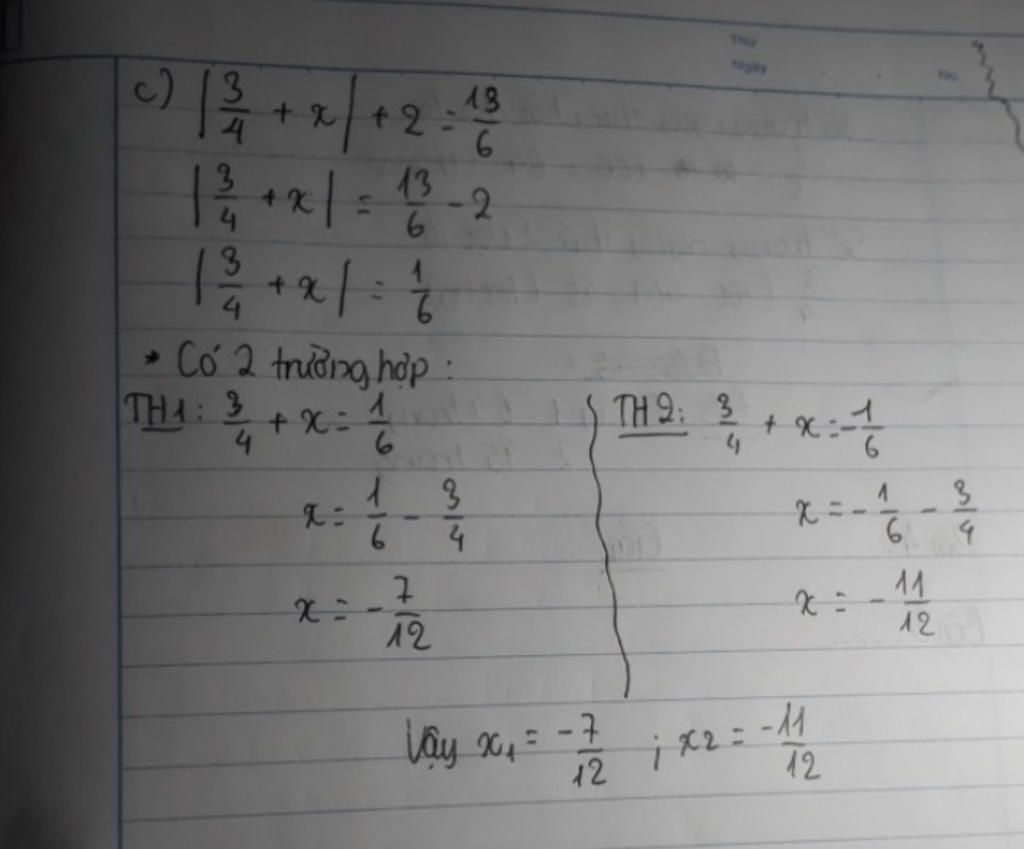 Thứ
Ngày
No.
c) |3/4 + x| + 2 = 13/6
|3/4 + x| = 13/6 - 2
|3/4 + x| = 1/6
* Có 2 trường hợp:
TH1: 3/4 + x = 1/6
x = 1/6 - 3/4
x = -7/12
TH2: 3/4 + x = -1/6
x = -1/6 - 3/4
x = -11/12
Vậy x₁ = -7/12 ; x₂ = -11/12